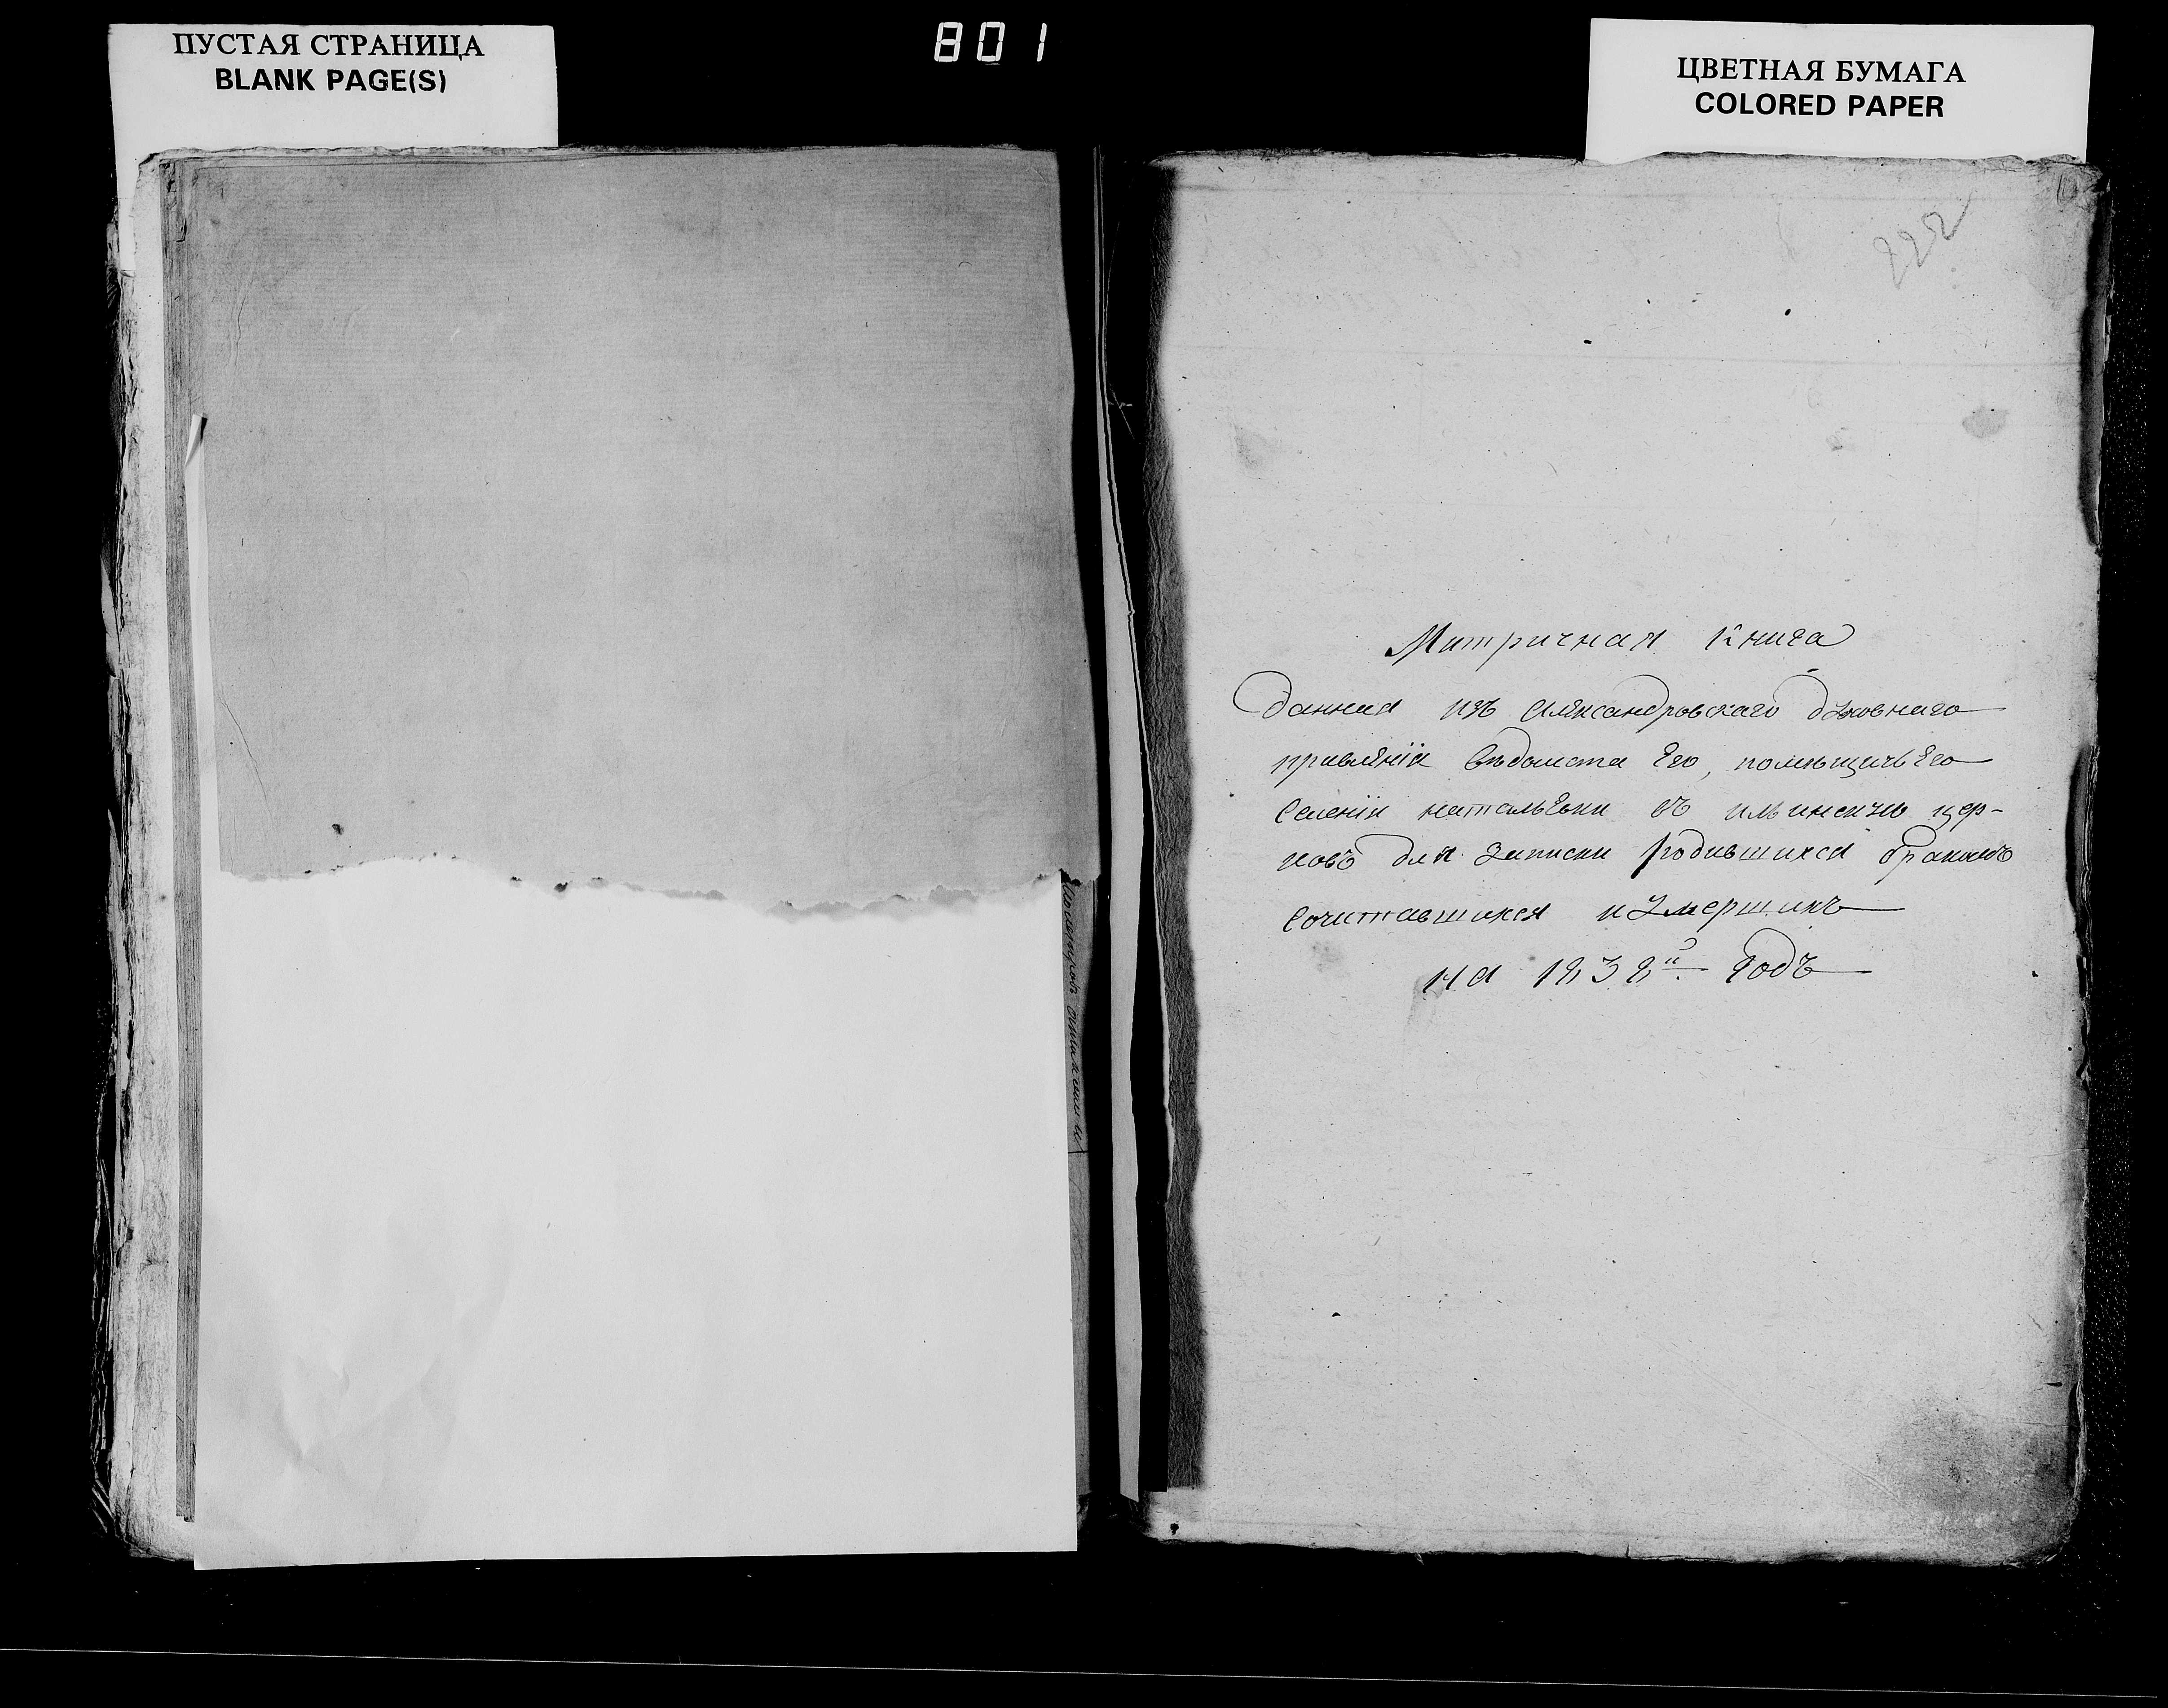 ПУСТАЯ СТРАНИЦА
BLANK PAGE(S)
801
ЦВЕТНАЯ БУМАГА
COLORED PAPER
222
Митричная Книга
данная изъ Аляксандровскаго дховнаго
правлѣнія Вѣдомста Его, помѣщичьЕго
Селенія натальѣвки въ ильинскую цер-
ковъ для записки родившихся бракомъ
Сочитавшихся и умершихъ
на 1838й. Годъ